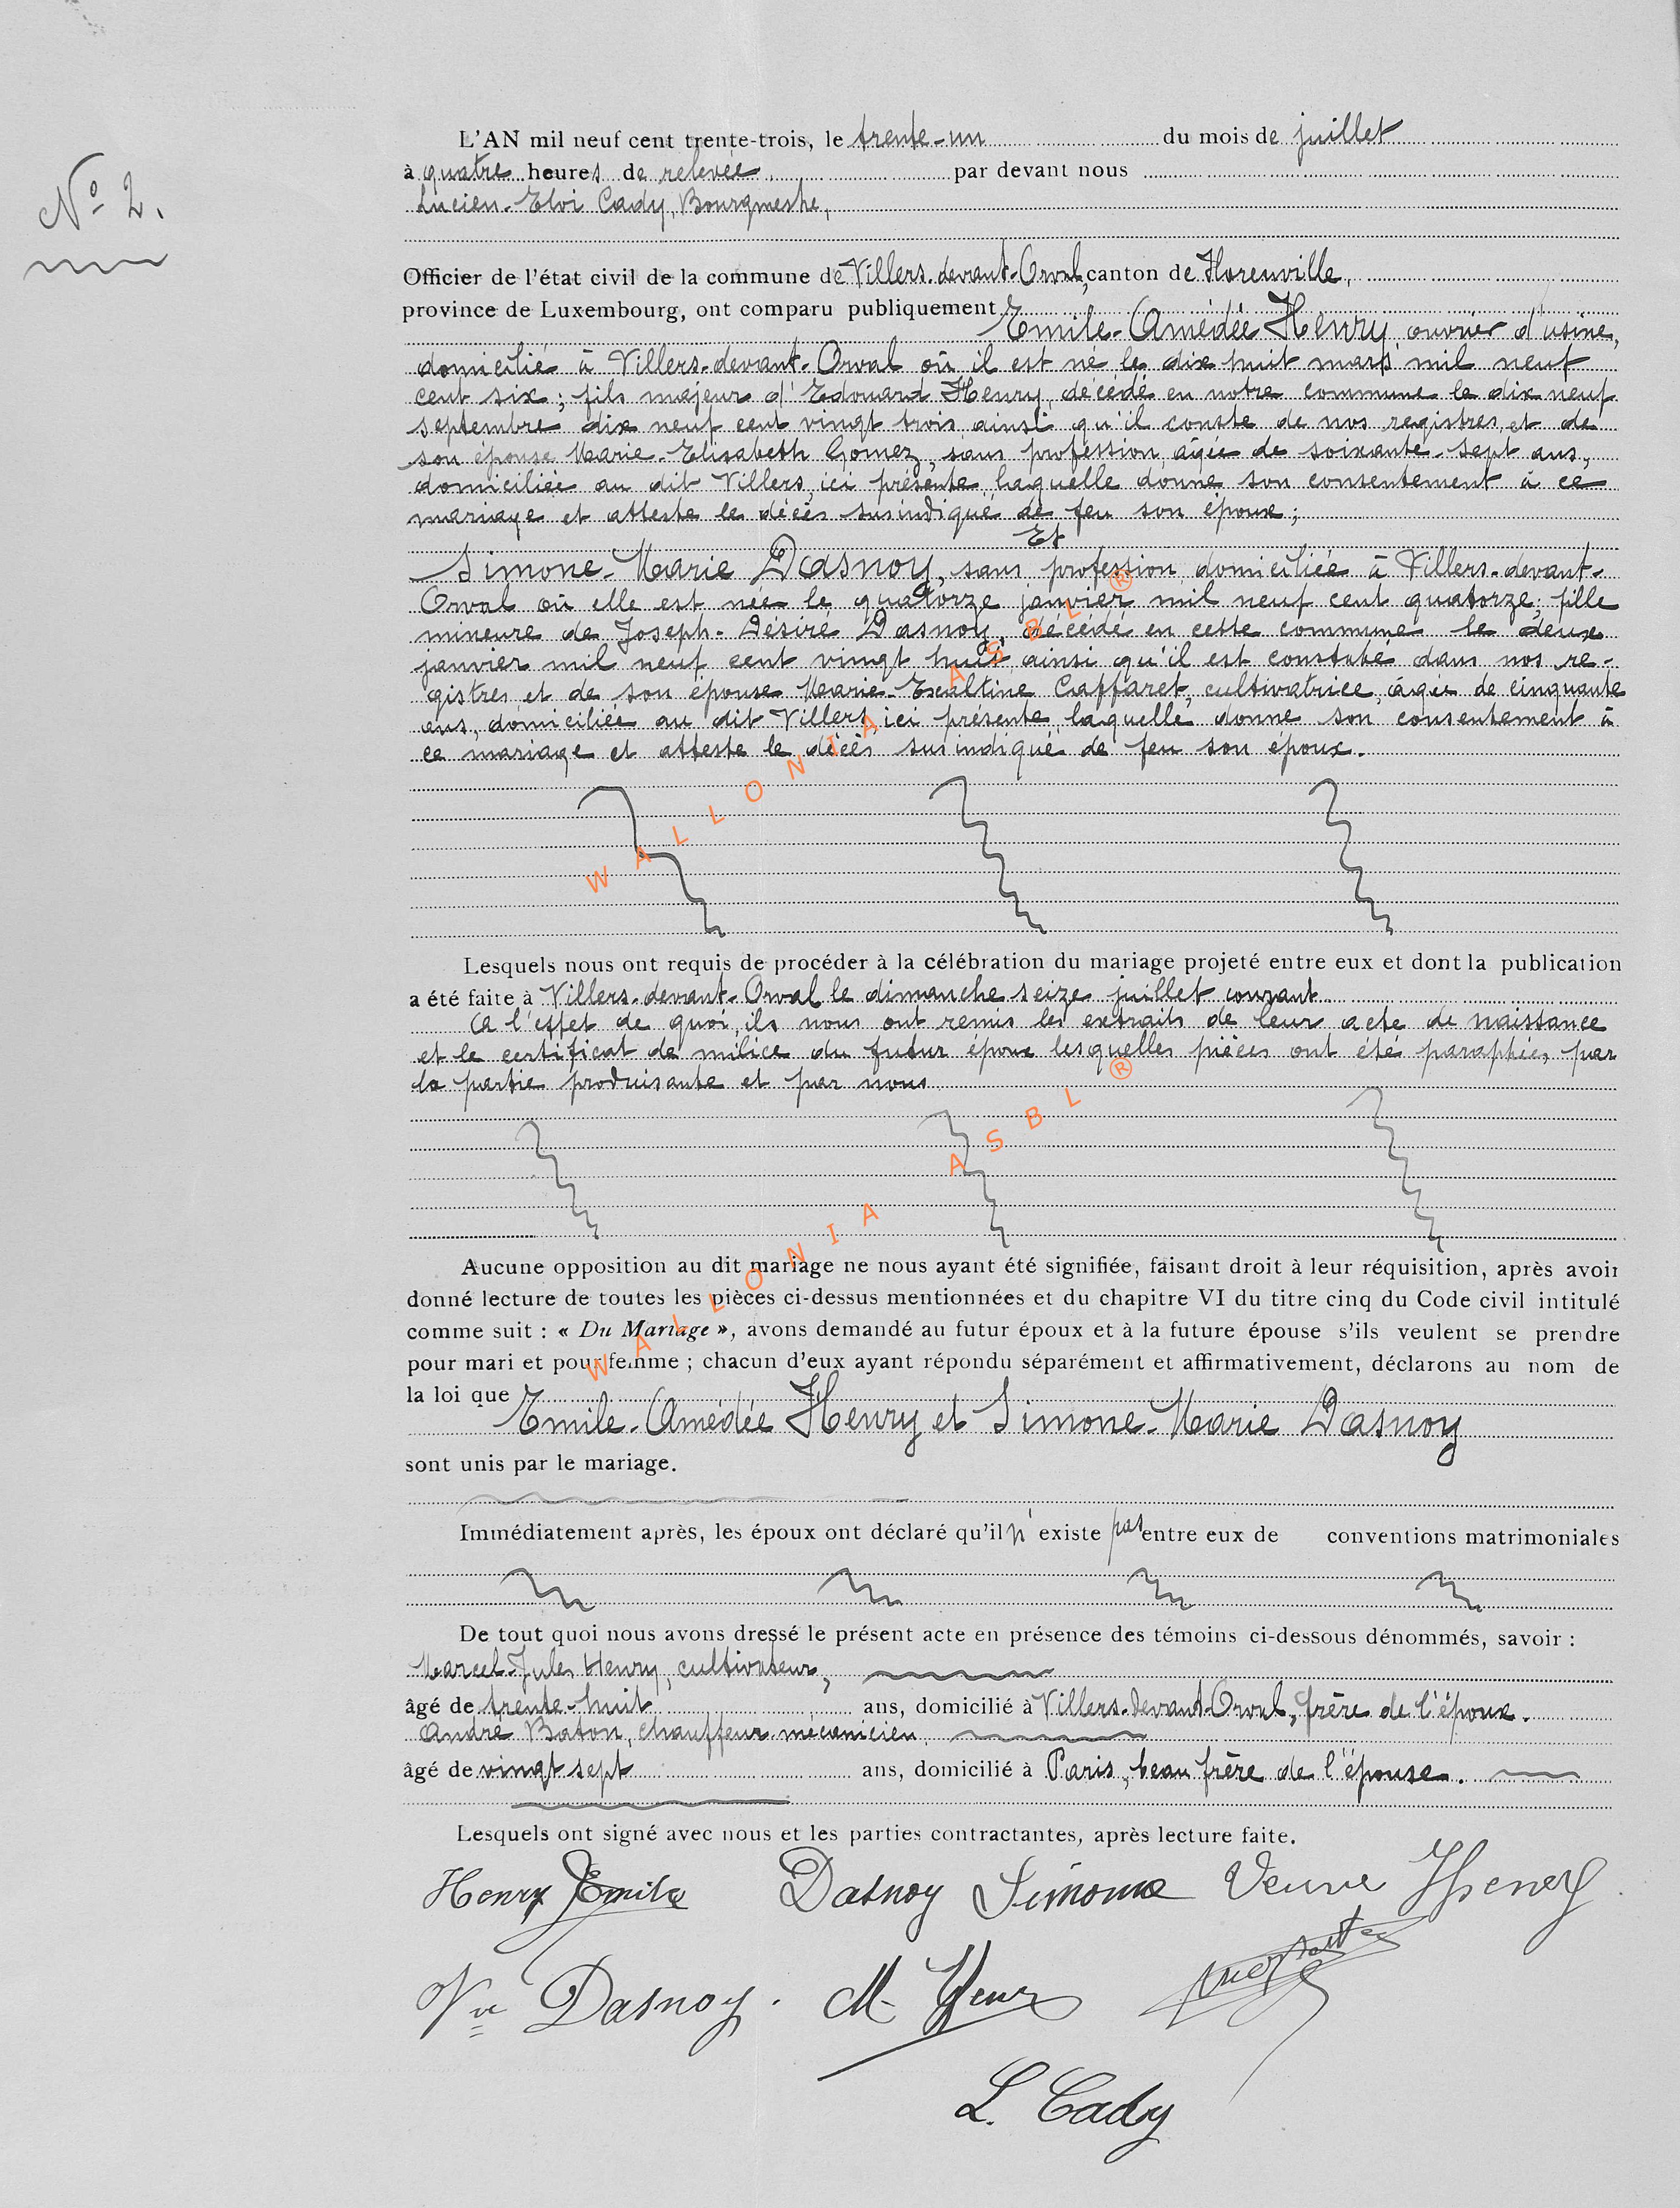 N° 2.
L'AN mil neuf cent trente-trois, le trente-un du mois de juillet
à quatre heures de relevée, par devant nous
Lucien-Eloi Cady, Bourgmestre,
Officier de l'état civil de la commune de Villers-devant-Orval, canton de Florenville,
province de Luxembourg, ont comparu publiquement
Emile-Amédée Henry, ouvrier d'usine,
domicilié à Villers-devant-Orval où il est né le dix huit mars mil neuf
cent six; fils majeur d'Edouard Henry, décédé en notre commune le dix neuf
septembre dix neuf cent vingt trois ainsi qu'il conste de nos registres, et de
son épouse Marie-Elisabeth Gomez, sans profession, âgée de soixante-sept ans,
domiciliée au dit Villers, ici présente, laquelle donne son consentement à ce
mariage et atteste le décès susindiqué de feu son époux;
Et
Simone-Marie Dasnoy, sans profession, domiciliée à Villers-devant-
Orval où elle est née le quatorze janvier mil neuf cent quatorze; fille
mineure de Joseph-Désiré Dasnoy, décédé en cette commune le deux
janvier mil neuf cent vingt huit ainsi qu'il est constaté dans nos re-
gistres et de son épouse Marie-Exultine Caffaret, cultivatrice, âgée de cinquante
ans, domiciliée au dit Villers, ici présente, laquelle donne son consentement à
ce mariage et atteste le décès susindiqué de feu son époux.
Lesquels nous ont requis de procéder à la célébration du mariage projeté entre eux et dont la publication
a été faite à Villers-devant-Orval le dimanche seize juillet courant
A l'effet de quoi, ils nous ont remis les extraits de leur acte de naissance
et le certificat de milice du futur époux lesquelles pièces ont été paraphées par
la partie produisante et par nous.
Aucune opposition au dit mariage ne nous ayant été signifiée, faisant droit à leur réquisition, après avoir
donné lecture de toutes les pièces ci-dessus mentionnées et du chapitre VI du titre cinq du Code civil intitulé
comme suit : « Du Mariage », avons demandé au futur époux et à la future épouse s'ils veulent se prendre
pour mari et pour femme ; chacun d'eux ayant répondu séparément et affirmativement, déclarons au nom de
la loi que
Emile-Amédée Henry et Simone-Marie Dasnoy
sont unis par le mariage.
Immédiatement après, les époux ont déclaré qu'il n'existe pas entre eux de conventions matrimoniales
De tout quoi nous avons dressé le présent acte en présence des témoins ci-dessous dénommés, savoir :
Marcel-Jules Henry, cultivateur,
âgé de trente-huit ans, domicilié à Villers-devant-Orval, frère de l'époux.
André Baton, chauffeur-mécanicien,
âgé de vingt sept ans, domicilié à Paris, beau frère de l'épouse.
Lesquels ont signé avec nous et les parties contractantes, après lecture faite.
Henry Emile Dasnoy Simone Veuve Henry
Vve Dasnoy. M Henry
L. Cady
WALLONIA ASBL ®
WALLONIA ASBL ®